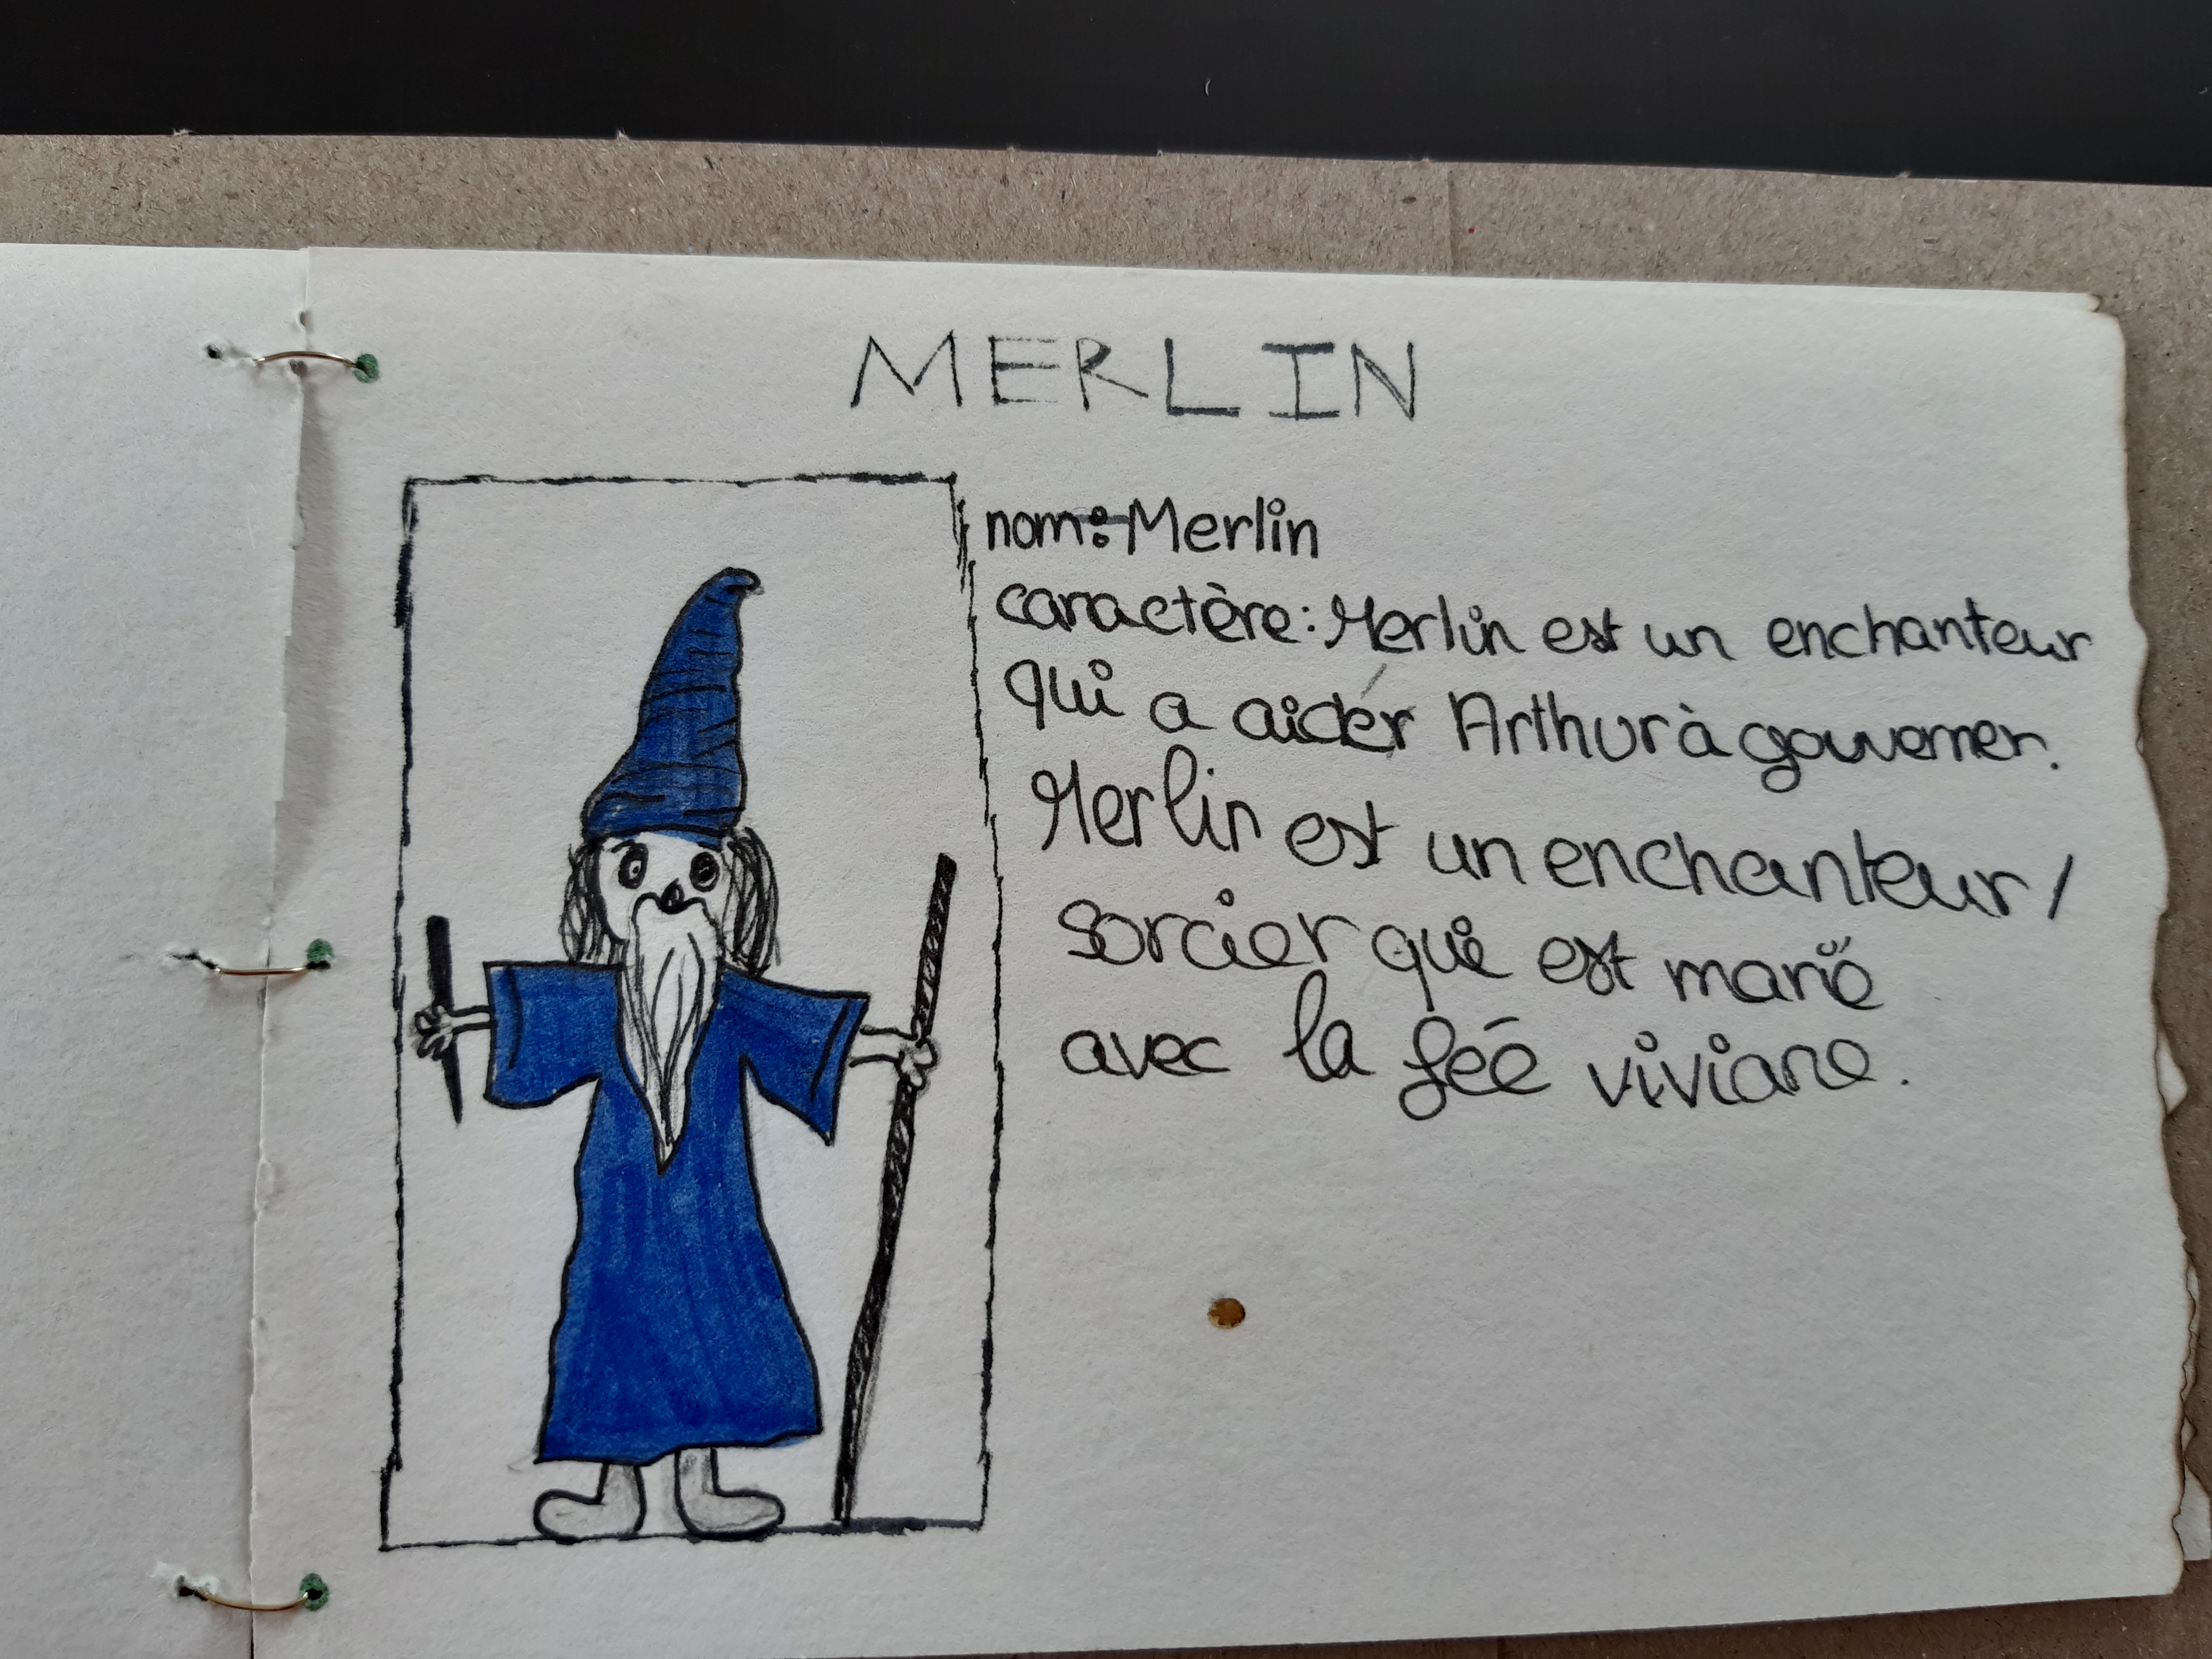 MERLIN
nom: Merlin
caractère: Merlin est un enchanteur
qui a aidér Arthur à gouverner.
Merlin est un enchanteur/
sorcier qui est marié
avec la féé viviane.